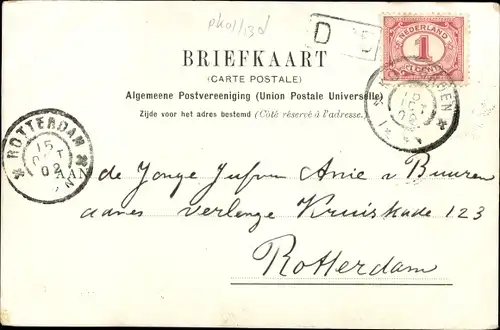 phot/13d
D
NEDERLAND
1
CENT
BRIEFKAART
(CARTE POSTALE)
Algemeene Postvereeniging (Union Postale Universelle)
Zijde voor het adres bestemd (Côté réservé à l'adresse.)
ROTTERDAM
15
OCT
02
AAN de Jonge Jufvrn Anie v Buuren
adres verlenge Kruiskade 123
Rotterdam